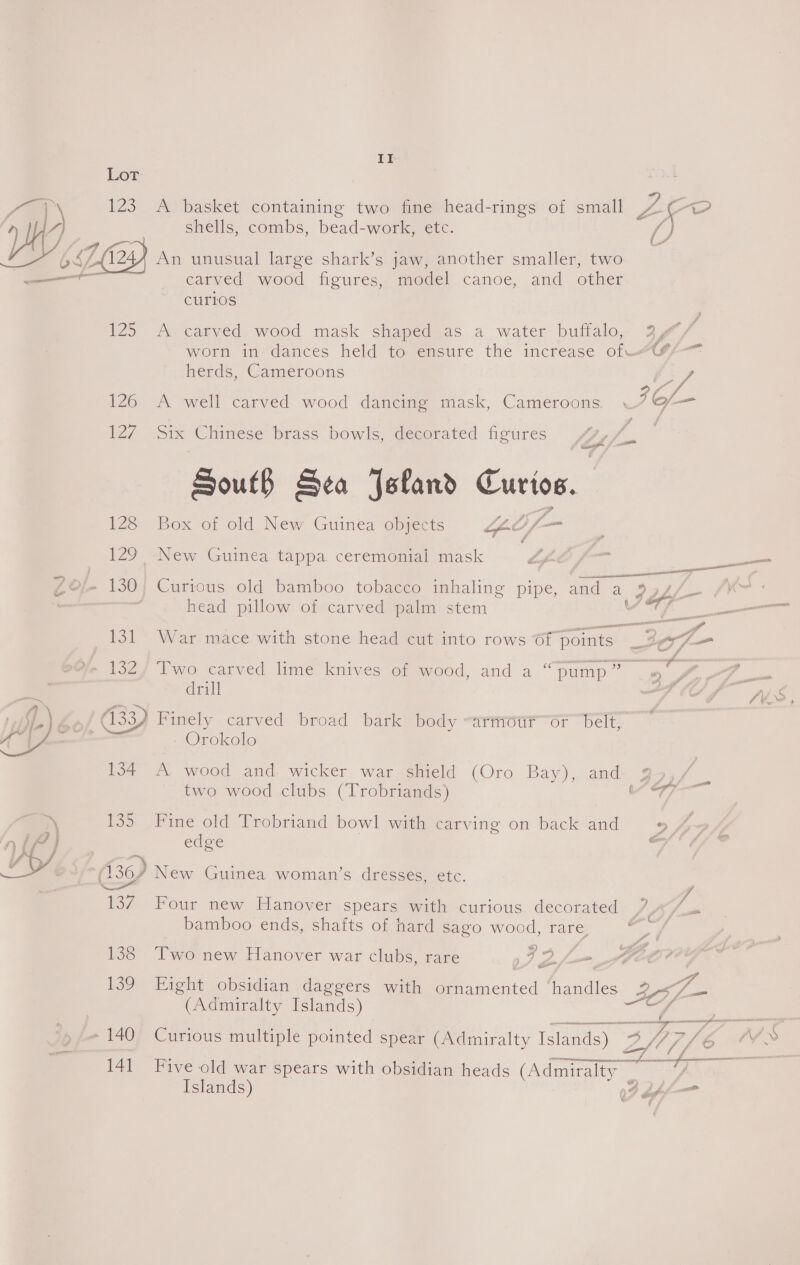 11
Lot
123 A basket containing two fine head-rings of small
shells, combs, bead-work, etc.
124 An unusual large shark's jaw, another smaller, two
carved wood figures, model canoe, and other
curios
125 A carved wood mask shaped as a water buffalo,
worn in dances held to ensure the increase of
herds, Cameroons
126 A well carved wood dancing mask, Cameroons
127 Six Chinese brass bowls, decorated figures
South Sea Island Curios.
128 Box of old New Guinea objects
129 New Guinea tappa ceremonial mask
20/- 130 Curious old bamboo tobacco inhaling pipe, and a
head pillow of carved palm stem
131 War mace with stone head cut into rows of points
132 Two carved lime knives of wood, and a "pump"
drill
133 Finely carved broad bark body armour or belt,
Orokolo
134 A wood and wicker war shield (Oro Bay), and
two wood clubs (Trobriands)
135 Fine old Trobriand bowl with carving on back and
edge
136 New Guinea woman's dresses, etc.
137 Four new Hanover spears with curious decorated
bamboo ends, shafts of hard sago wood, rare
138 Two new Hanover war clubs, rare
139 Eight obsidian daggers with ornamented handles
(Admiralty Islands)
140 Curious multiple pointed spear (Admiralty Islands)
141 Five old war spears with obsidian heads (Admiralty
Islands)